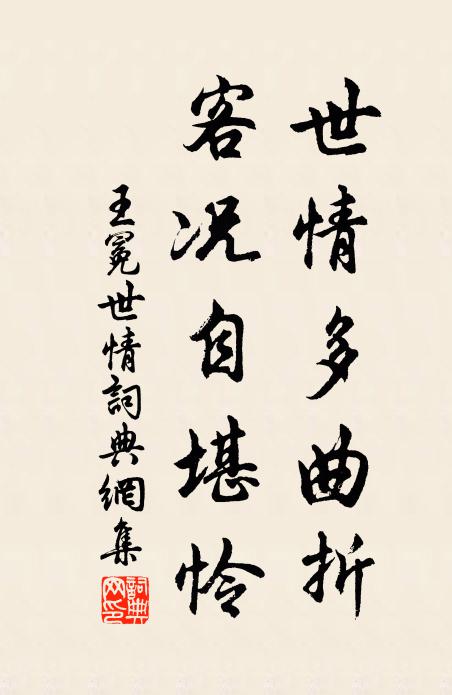 世情多曲折
客况自堪怜
王冕世情詞典網集
詞典網印